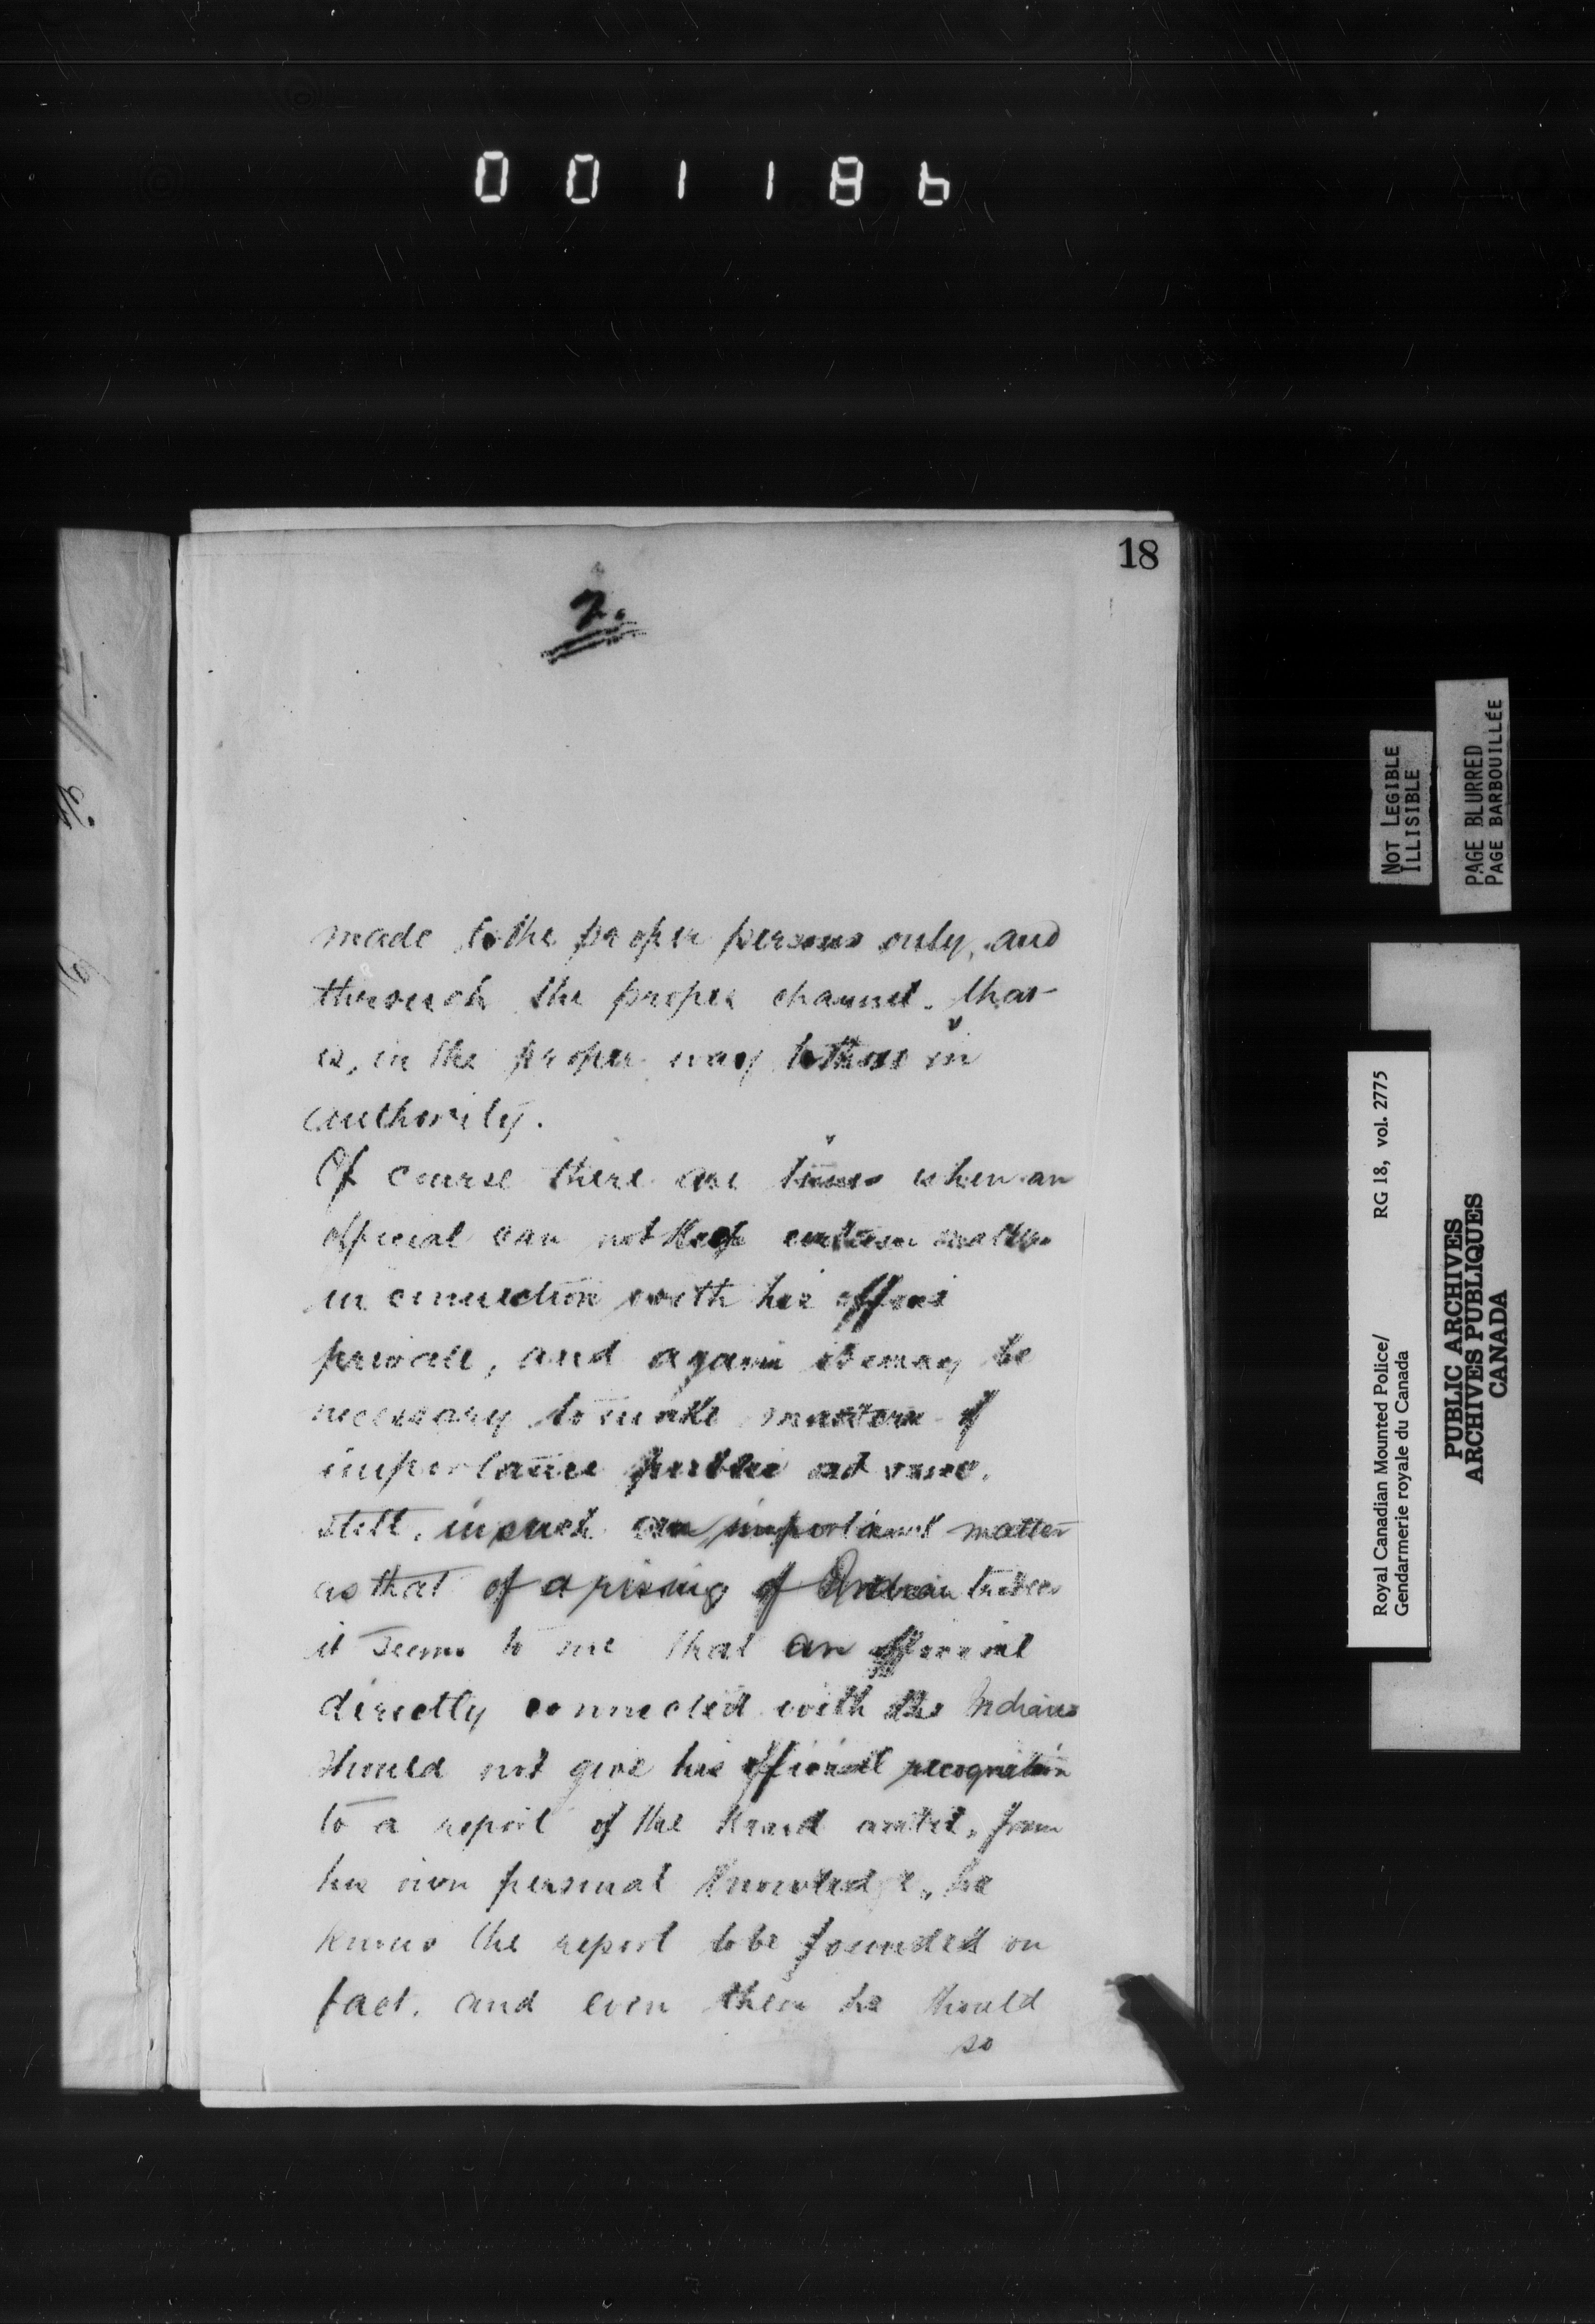 001186
18
2.
made to the proper persons only, and
through the proper channel. that
is, in the proper way to those in
authority.
Of course there are times when an
official can not keep certain matters
in connection with his office
private, and again it may be
necessary to make matters of
importance public at once.
still, in such an important matter
as that of a rising of Indian tribes
it seems to me that an official
directly connected with the Indians
should not give his official recognition
to a report of the kind until, from
his own personal knowledge, he
knows the report to be founded on
fact. and even then he should
so
NOT LEGIBLE
ILLISIBLE
PAGE BLURRED
PAGE BARBOUILLÉE
Royal Canadian Mounted Police/ RG 18, vol. 2775
Gendarmerie royale du Canada
PUBLIC ARCHIVES
ARCHIVES PUBLIQUES
CANADA